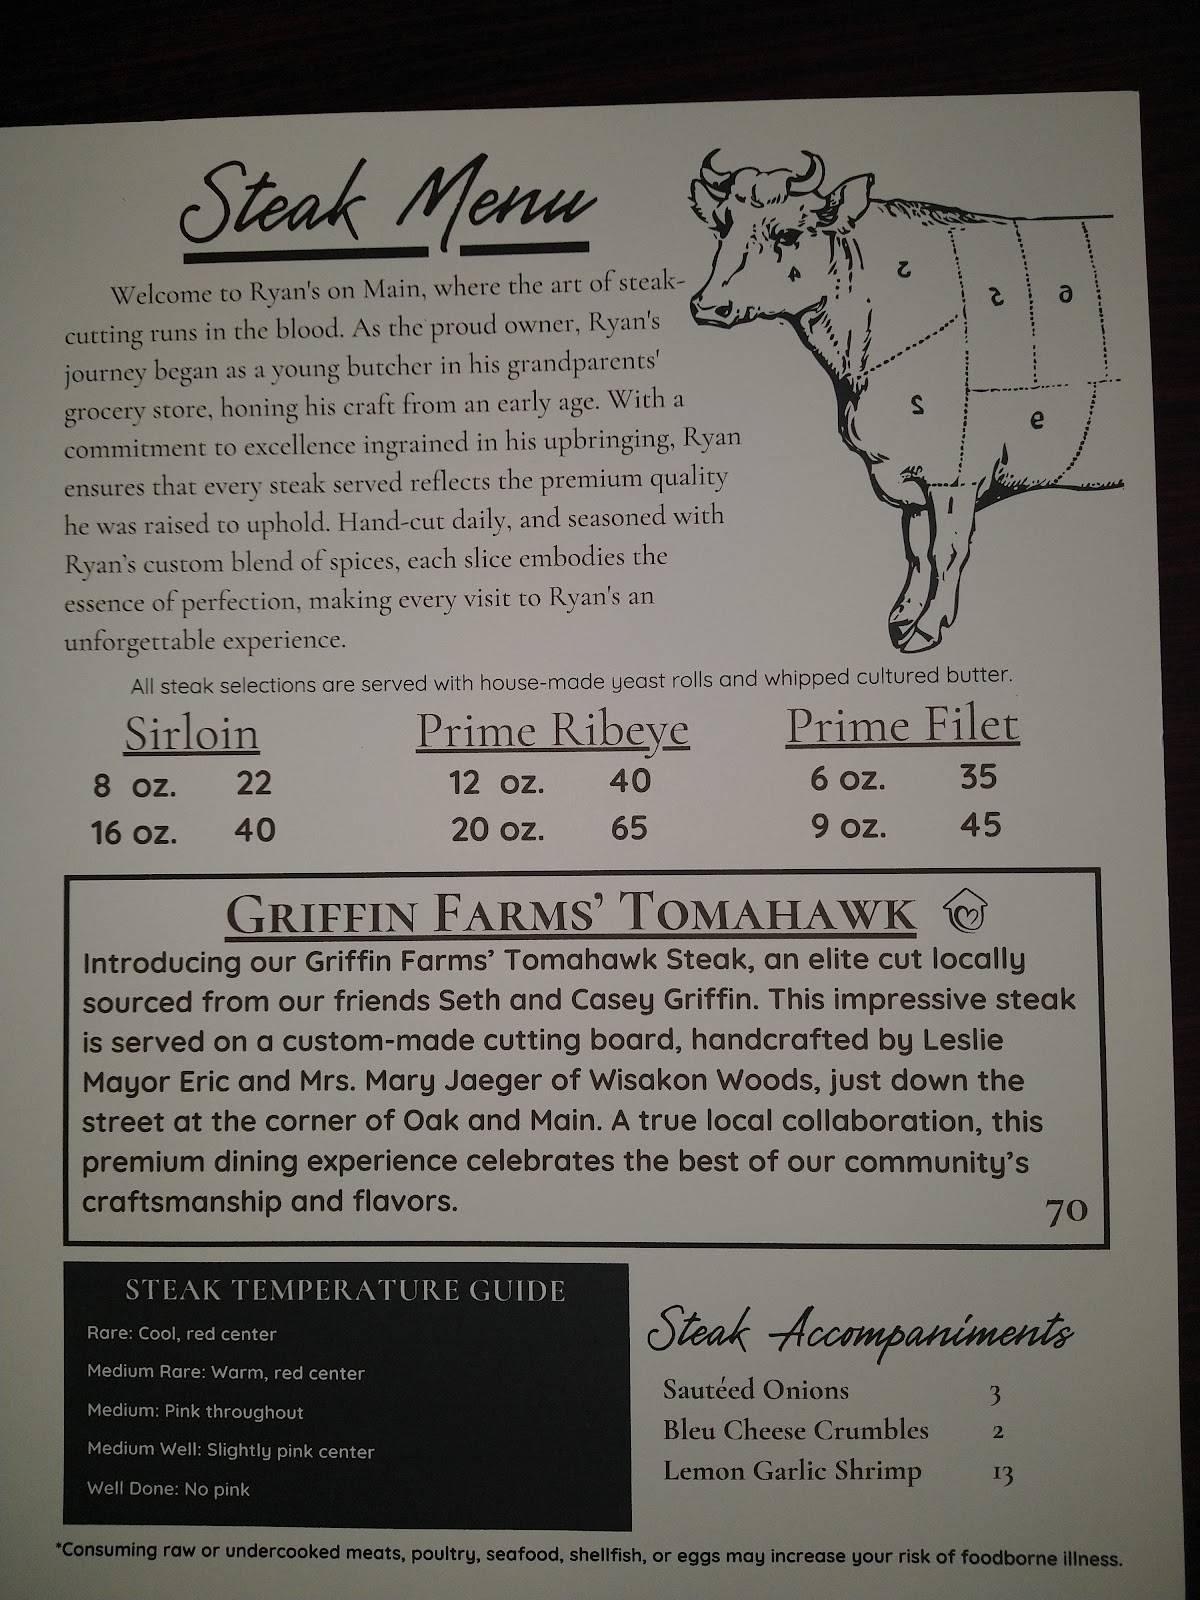 Steak Menu
Welcome to Ryan's on Main, where the art of steak-
cutting runs in the blood. As the proud owner, Ryan's
journey began as a young butcher in his grandparents'
grocery store, honing his craft from an early age. With a
commitment to excellence ingrained in his upbringing, Ryan
ensures that every steak served reflects the premium quality
he was raised to uphold. Hand-cut daily, and seasoned with
Ryan's custom blend of spices, each slice embodies the
essence of perfection, making every visit to Ryan's an
unforgettable experience.
All steak selections are served with house-made yeast rolls and whipped cultured butter.
Sirloin
8 oz. 22
16 oz. 40
Prime Ribeye
12 oz. 40
20 oz. 65
Prime Filet
6 oz. 35
9 oz. 45
GRIFFIN FARMS' TOMAHAWK
Introducing our Griffin Farms' Tomahawk Steak, an elite cut locally
sourced from our friends Seth and Casey Griffin. This impressive steak
is served on a custom-made cutting board, handcrafted by Leslie
Mayor Eric and Mrs. Mary Jaeger of Wisakon Woods, just down the
street at the corner of Oak and Main. A true local collaboration, this
premium dining experience celebrates the best of our community's
craftsmanship and flavors.
70
STEAK TEMPERATURE GUIDE
Rare: Cool, red center
Medium Rare: Warm, red center
Medium: Pink throughout
Medium Well: Slightly pink center
Well Done: No pink
Steak Accompaniments
Sautéed Onions 3
Bleu Cheese Crumbles 2
Lemon Garlic Shrimp 13
*Consuming raw or undercooked meats, poultry, seafood, shellfish, or eggs may increase your risk of foodborne illness.